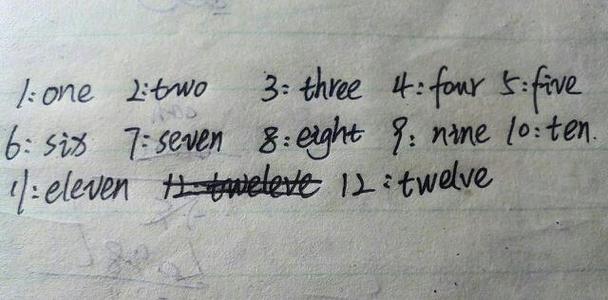 1: one 2: two 3: three 4: four 5: five
6: six 7: seven 8: eight 9: nine 10: ten.
11: eleven 12: tweleve 12: twelve